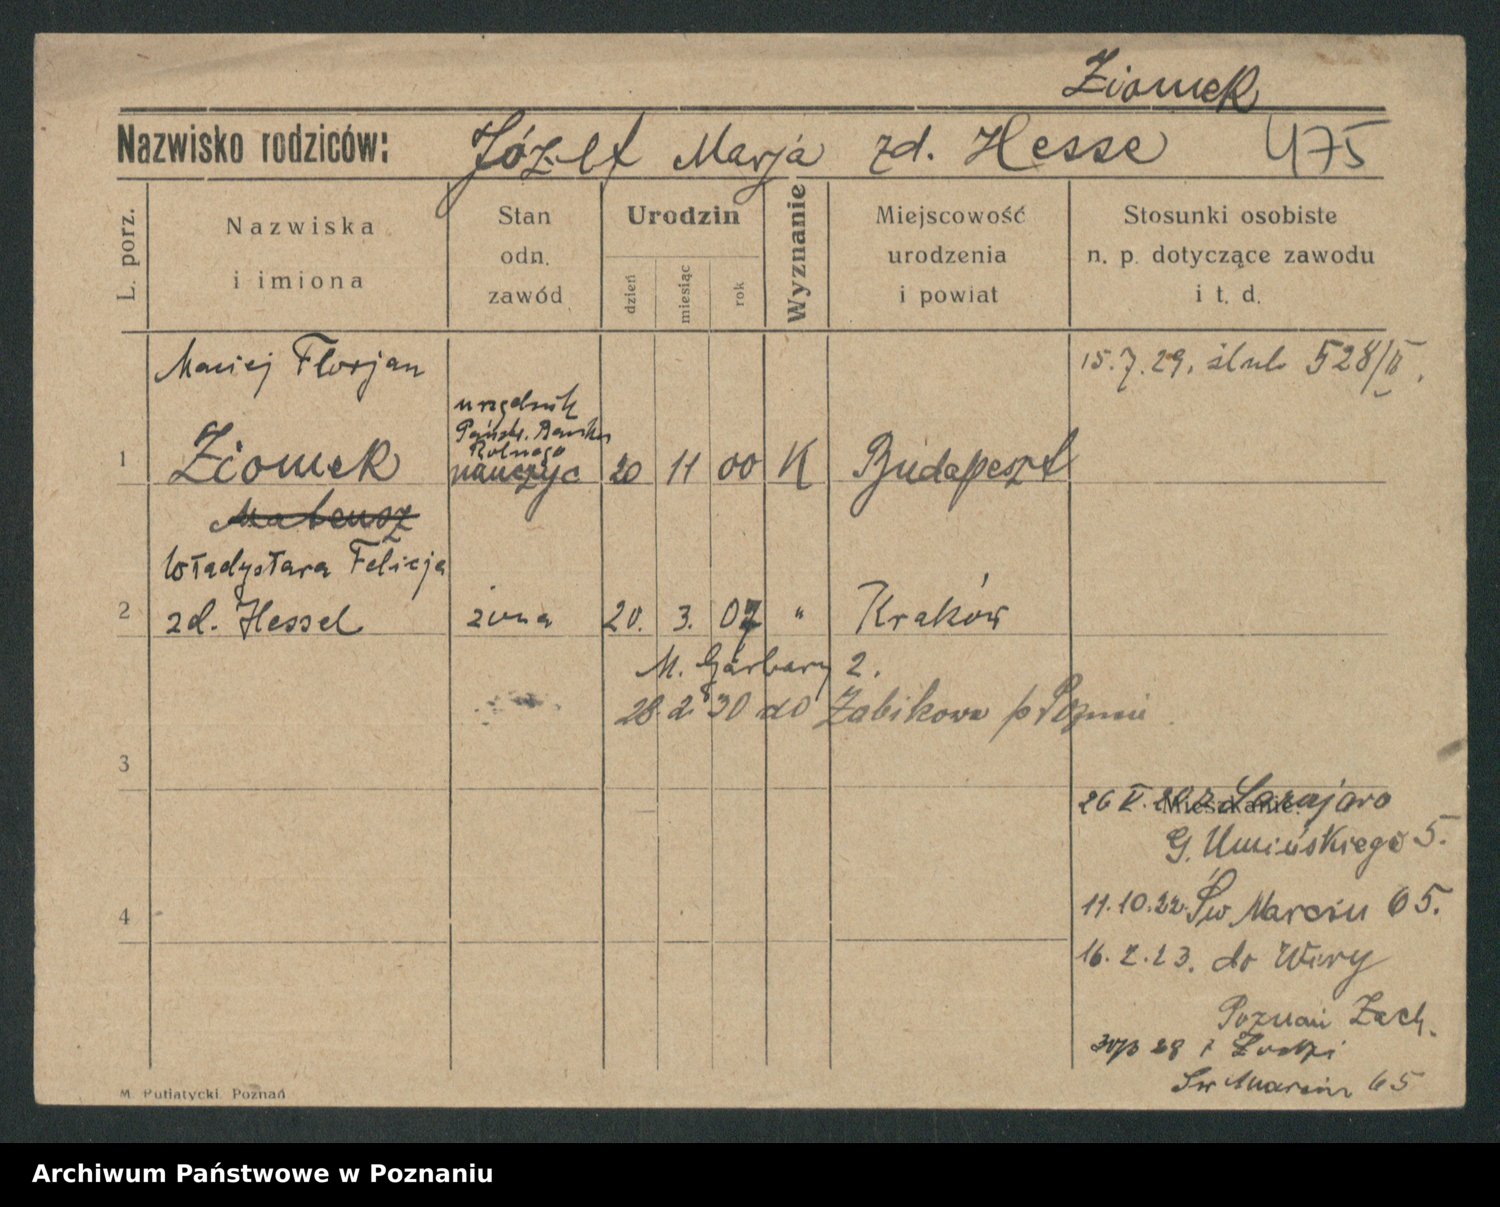 Ziomek
Nazwisko rodziców: Józef Marja zd. Hesse 475
L. porz.
Nazwiska
i imiona
Stan
odn.
zawód
Urodzin
dzień
miesiąc
rok
Wyznanie
Miejscowość
urodzenia
i powiat
Stosunki osobiste
n. p. dotyczące zawodu
i t. d.
Maciej Florjan 15.7.29. ślub 528/II.
urzędnik
Państw. Banku
Rolnego
1 Ziomek nauczyc 20 11 00 K Budapeszt
Mateusz
Władysława Felicja
2 zd. Hessel żona 20. 3. 07 " Kraków
M. Garbary 2.
28.2 30 do Żabikowa p Pozn
3
26 V. Mieszkanie: Sarajewo
G. Umińskiego 5.
4 11.10.22. Św Marcin 65.
16.2.23. do Wiry
Poznań Zach.
28 z Łodzi
Św Marcin 65
M. Putiatycki. Poznań
Archiwum Państwowe w Poznaniu